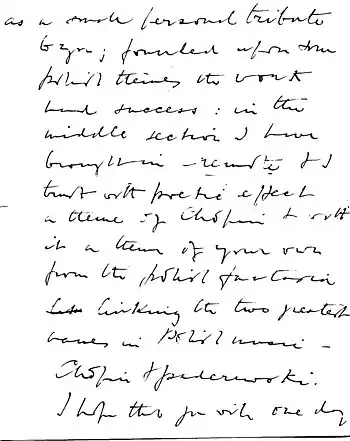 as a small personal tribute
to you; founded upon some
Polish themes the work
had success: in the
middle section I have
brought in – remote & I
trust with poetic effect
a theme of Chopin & with
it a theme of your own
from the Polish fantasia
linking the two greatest
names in Polish music –
Chopin & Paderewski.
I hope that you will one day